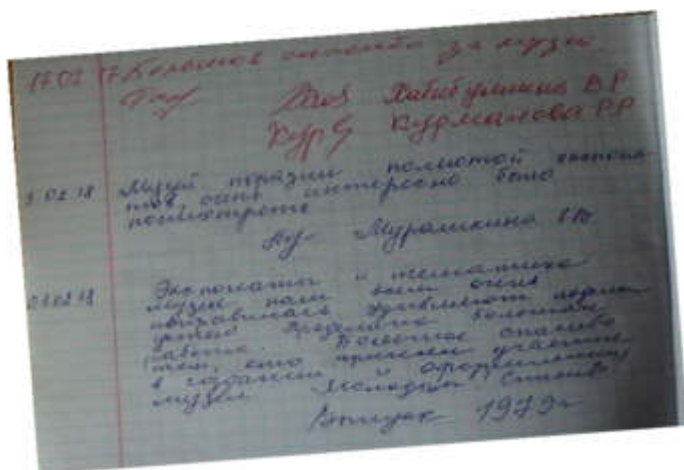 17.02.17 Большое спасибо за музей.
Хабибуллина В.Р
Курманова Р.Р
9.02.18 Музей поразил полнотой экспона-
тов, очень интересно было
посмотреть
Мурашкина
03.02.18 Экспонаты и тематика
музея нам всем очень
понравилась
Проделана большая
работа. Большое спасибо
тем, кто принял участие
в создании и оформлении
музея. Молодцы
Выпуск 1979г